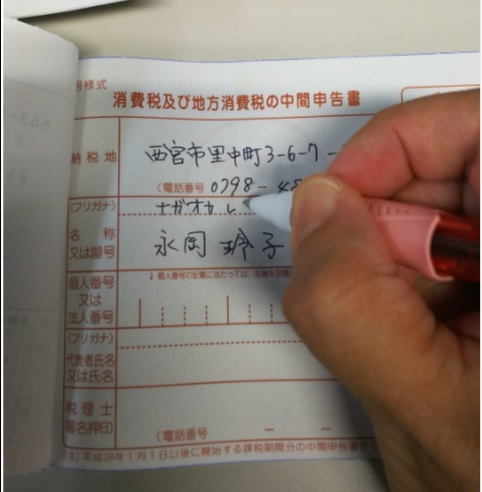 号様式
消費税及び地方消費税の中間申告書
納税地
西宮市里中町3-6-7-
(電話番号 0798-48
(フリガナ)
ナガオカ レ
名称
又は屋号
永岡 玲子
↓個人番号の記載に当たっては、左端を空欄
個人番号
又は
法人番号
(フリガナ)
代表者氏名
又は氏名
税理士
署名押印
(電話番号 - -
(注) 平成28年1月1日以後に開始する課税期間分の中間申告書か